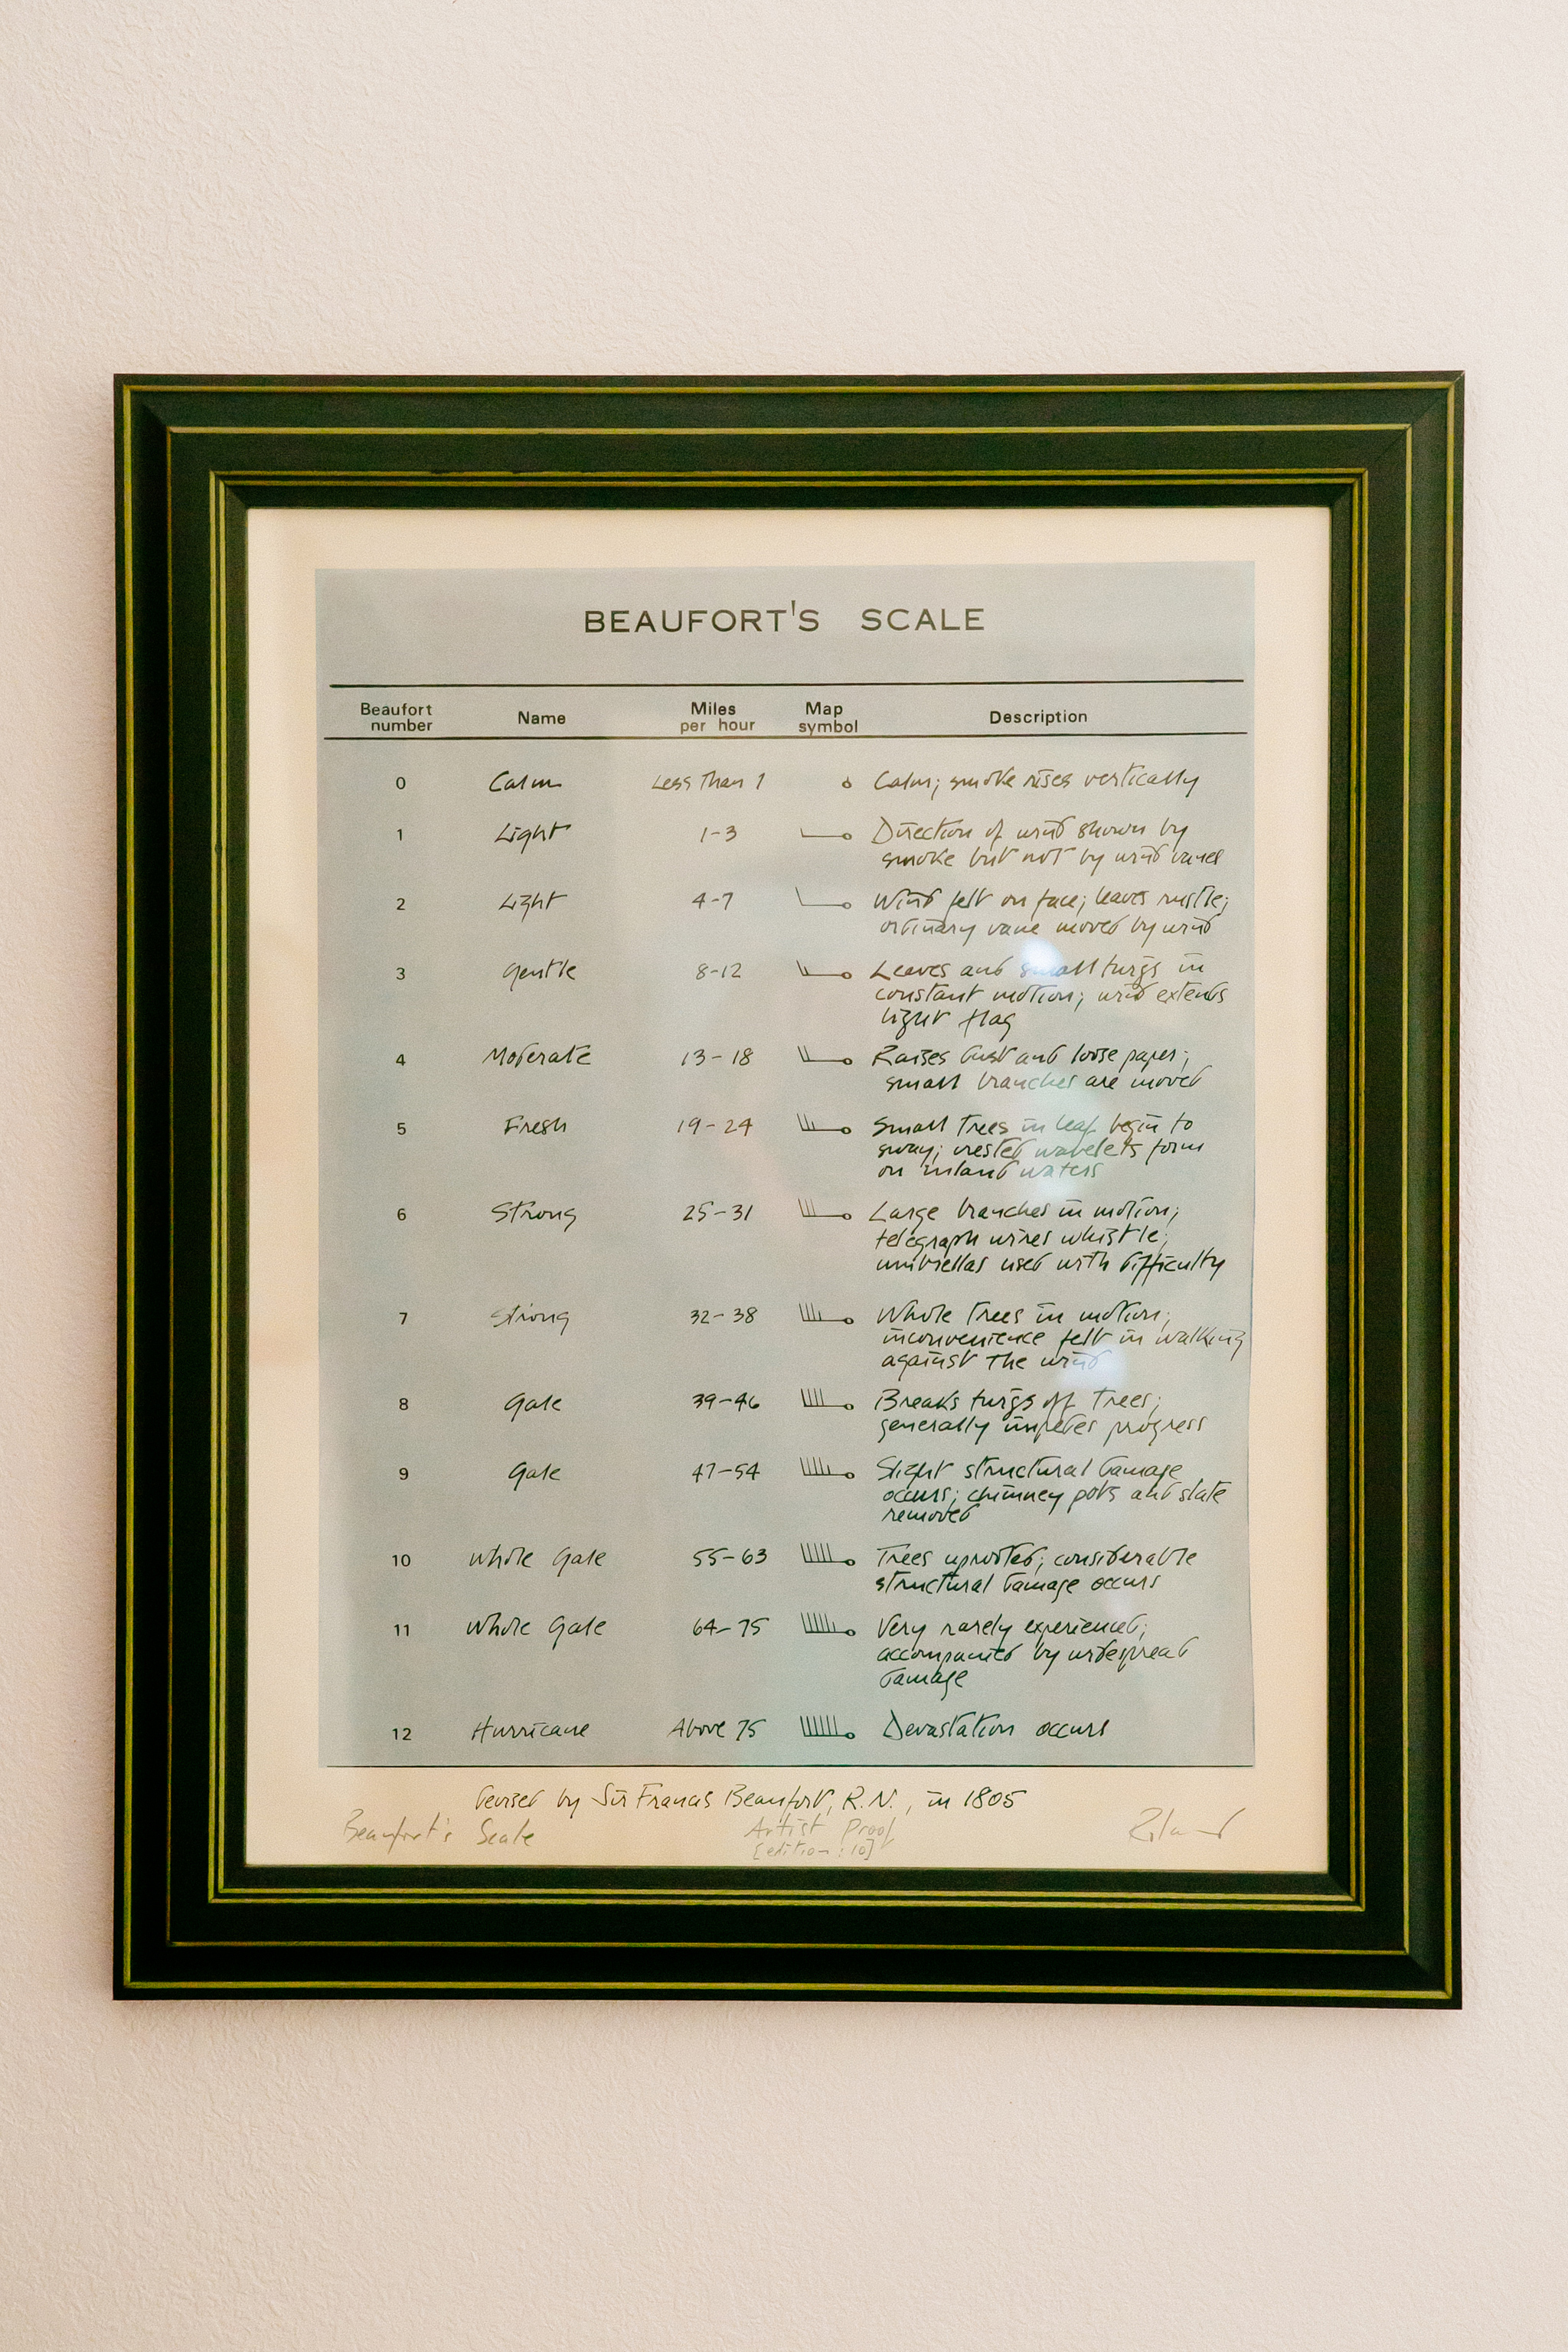 BEAUFORT'S SCALE
Beaufort number Name Miles per hour Map symbol Description
0 Calm Less Than 1 Calm; smoke rises vertically
1 Light 1-3 Direction of wind shown by
smoke but not by wind vanes
2 Light 4-7 Wind felt on face; leaves rustle;
ordinary vane moved by wind
3 Gentle 8-12 Leaves and small twigs in
constant motion; wind extends
light flag
4 Moderate 13-18 Raises dust and loose paper;
small branches are moved
5 Fresh 19-24 Small Trees in leaf begin to
sway; crested wavelets form
on inland waters
6 Strong 25-31 Large branches in motion;
telegraph wires whistle;
umbrellas used with difficulty
7 Strong 32-38 Whole Trees in motion;
inconvenience felt in walking
against The wind
8 Gale 39-46 Breaks twigs off Trees;
generally impedes progress
9 Gale 47-54 Slight structural damage
occurs; chimney pots and slate
removed
10 Whole Gale 55-63 Trees uprooted; considerable
structural damage occurs
11 Whole Gale 64-75 Very rarely experienced;
accompanied by widespread
damage
12 Hurricane Above 75 Devastation occurs
devised by Sir Francis Beaufort, R.N., in 1805
Beaufort's Scale Artist Proof
[edition: 10]